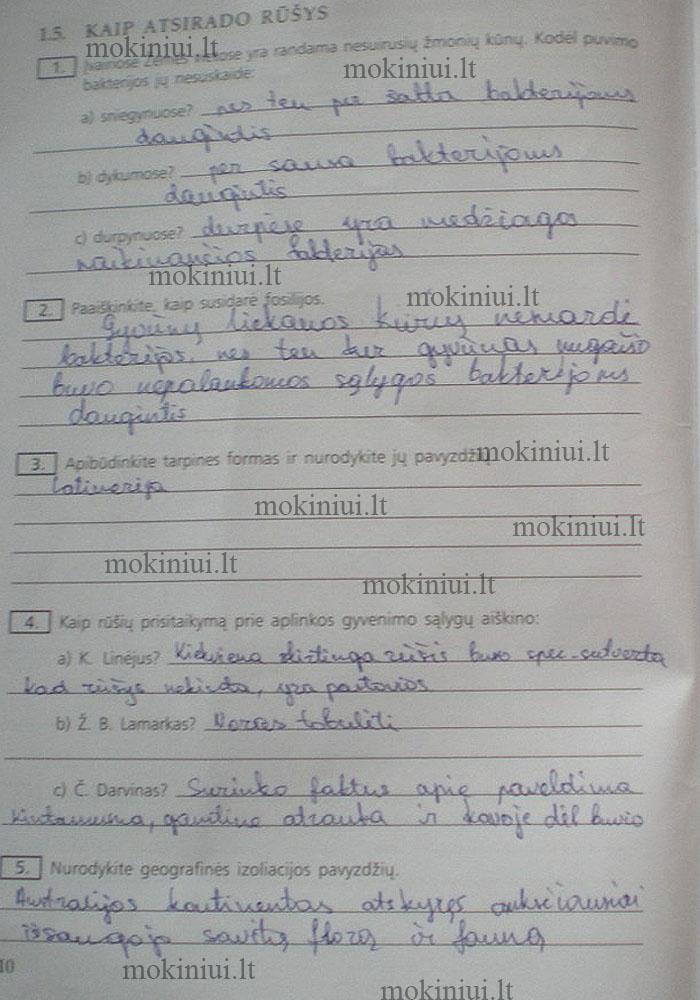 1.5. KAIP ATSIRADO RŪŠYS
mokiniui.lt
1. Įvairiose Žemės vietose yra randama nesuirusių žmonių kūnų. Kodėl puvimo
mokiniui.lt
bakterijos jų nesuskaidė:
a) sniegynuose? nes ten per šalta bakterijoms
daugintis
b) dykumose? per sausa bakterijoms
daugintis
c) durpynuose? durpėse yra medžiagos
naikinančios bakterijas
mokiniui.lt
mokiniui.lt
2. Paaiškinkite, kaip susidarė fosilijos.
Gyvūnų liekanos kurių nemardė
bakterijos, nes ten kur gyvūnas nugaišo
buvo nepalankomos sąlygos bakterijoms
daugintis
3. Apibūdinkite tarpines formas ir nurodykite jų pavyzdžių.
mokiniui.lt
Latimerija
mokiniui.lt
mokiniui.lt
mokiniui.lt
mokiniui.lt
4. Kaip rūšių prisitaikymą prie aplinkos gyvenimo sąlygų aiškino:
a) K. Linėjus? Kiekviena skirtinga rūšis buvo spec. sutverta
kad rūšys nekinta, yra pastovios
b) Ž. B. Lamarkas? Noras tobulėti
c) Č. Darvinas? Surinko faktus apie paveldima
kintamuma, gamtine atranka ir kovoje dėl buvio
5. Nurodykite geografinės izoliacijos pavyzdžių.
Australijos kontinentas atskyręs anksčiausiai
išsaugojo savitą florą ir fauną
10
mokiniui.lt
mokiniui.lt